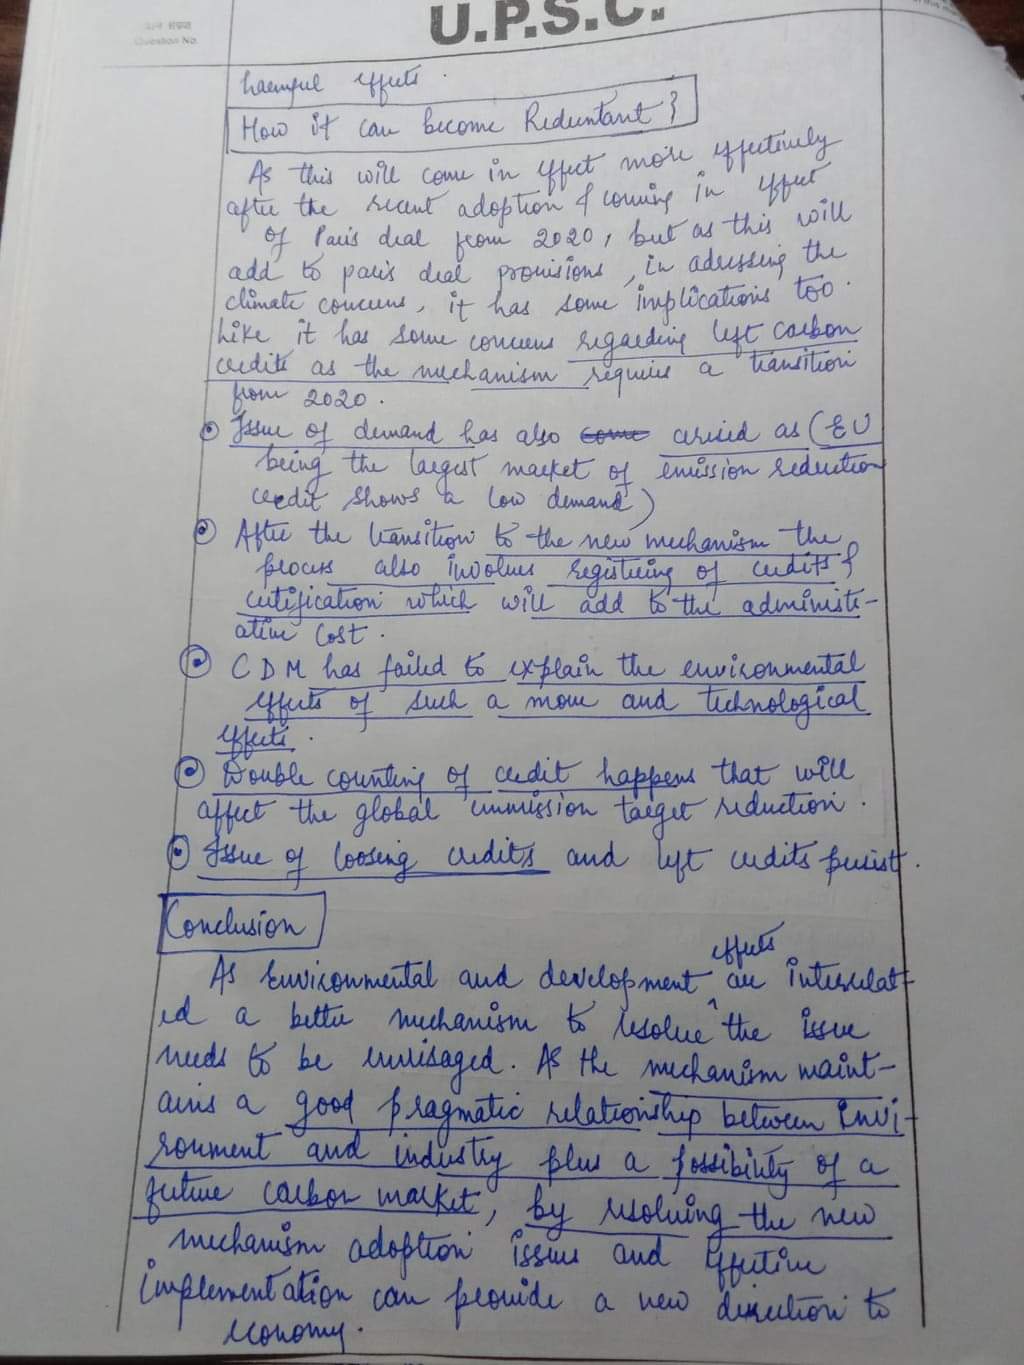 U.P.S.C.
प्रश्न संख्या
Question No.
harmful effects.
How it can become Reduntant ?
As this will come in effect more effectively
after the recent adoption & coming in effect
of Paris deal from 2020, but as this will
add to paris deal provisions, in adressing the
climate concerns, it has some implications too.
Like it has some concerns regarding left carbon
credits as the mechanism requires a transition
from 2020.
Issue of demand has also come arised as (EU
being the largest market of emission reduction
credit shows a low demand)
After the transition to the new mechanism the
process also involves registering of credits &
certification which will add to the administr-
ative cost.
CDM has failed to explain the environmental
effects of such a move and technological
effects.
Double counting of credit happens that will
affect the global emmission target reduction.
Issue of loosing credits and left credits persist.
Conclusion
As Environmental and development effects are interrelat-
ed a better mechanism to resolve the issue
needs to be envisaged. As the mechanism maint-
ains a good pragmatic relationship between Envi-
ronment and industry plus a possibility of a
future carbon market, by resolving the new
mechanism adoption issues and effective
implementation can provide a new direction to
economy.